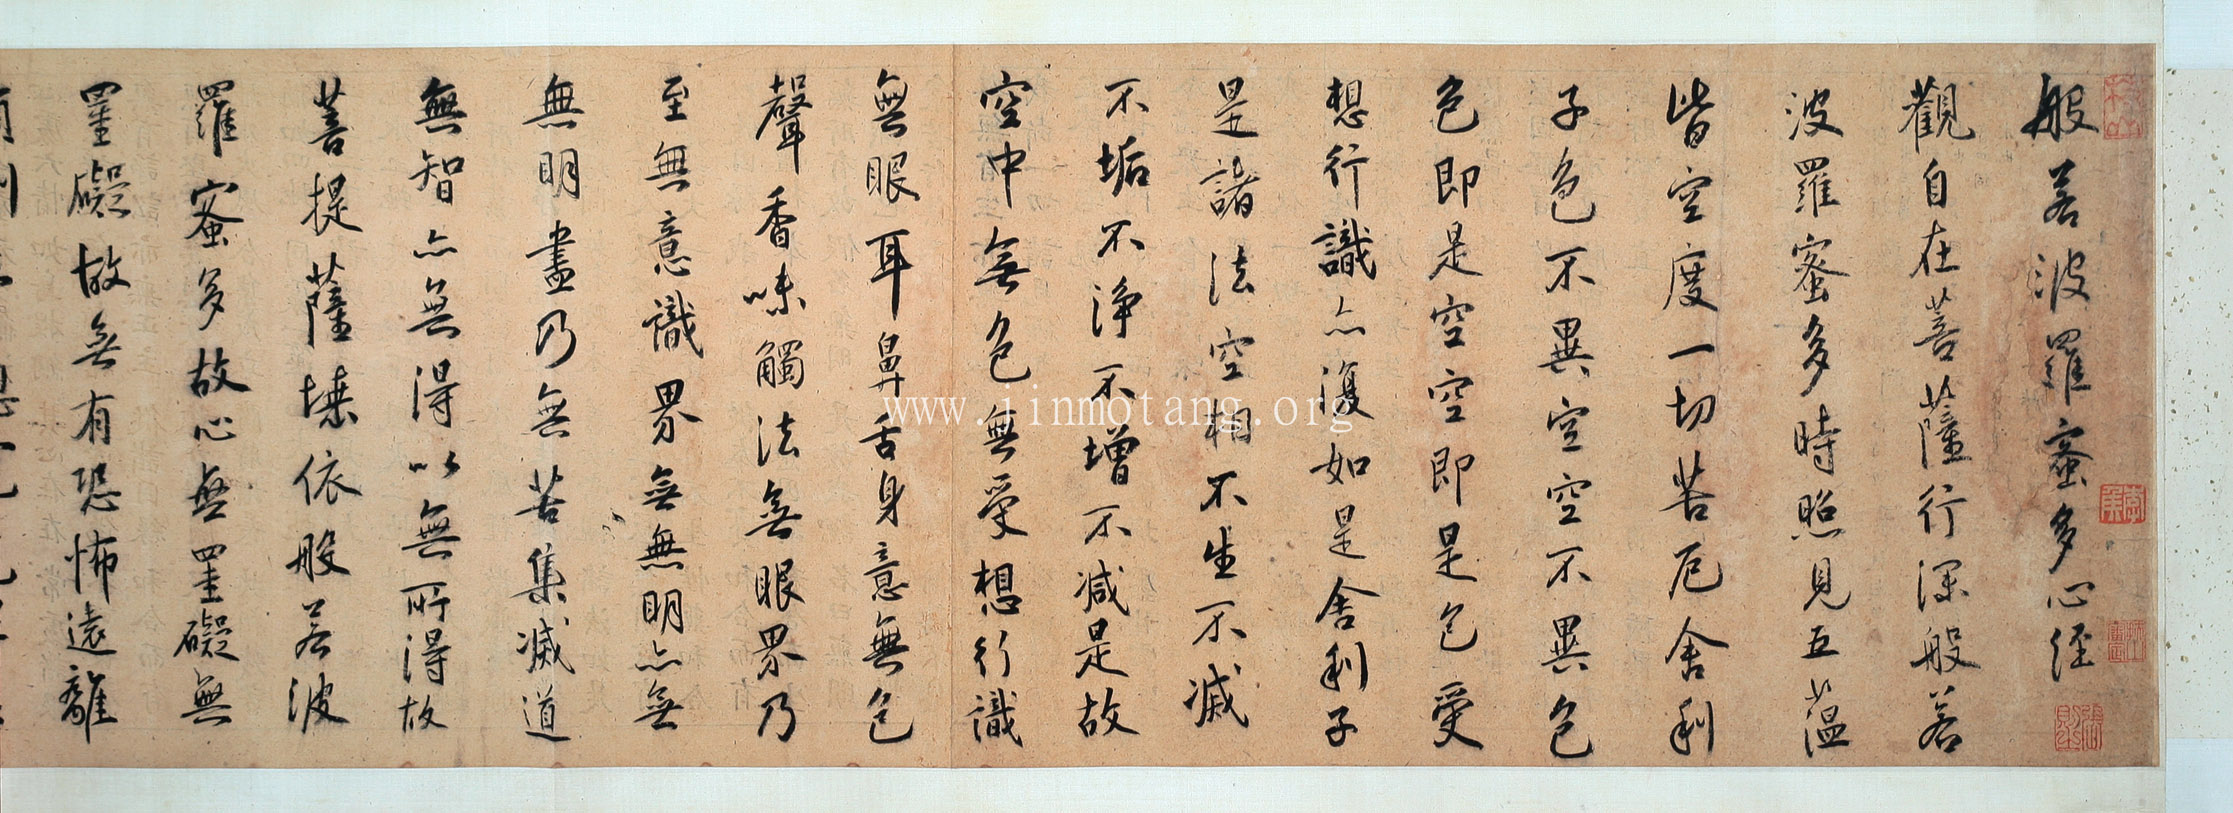 般若波羅蜜多心經
觀自在菩薩行深般若
波羅蜜多時照見五蘊
皆空度一切苦厄舍利
子色不異空空不異色
色即是空空即是色受
想行識亦復如是舍利子
是諸法空相不生不滅
不垢不淨不增不減是故
空中無色無受想行識
無眼耳鼻舌身意無色
聲香味觸法無眼界乃
至無意識界無無明亦無
無明盡乃無苦集滅道
無智亦無得以無所得故
菩提薩埵依般若波
羅蜜多故心無罣礙無
罣礙故無有恐怖遠離
www.jinmotang.org